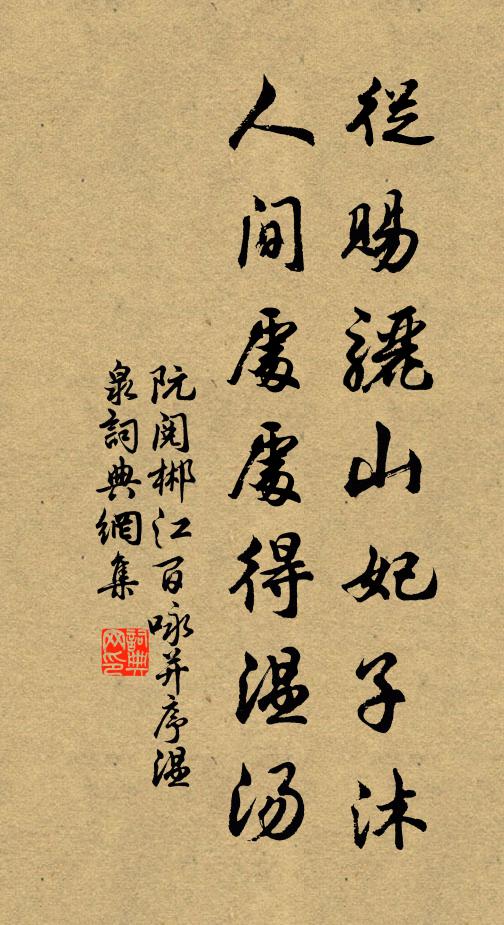 從賜驪山妃子沐
人間處處得溫湯
阮閱郴江百咏并序溫
泉詞典網集
詞典網印